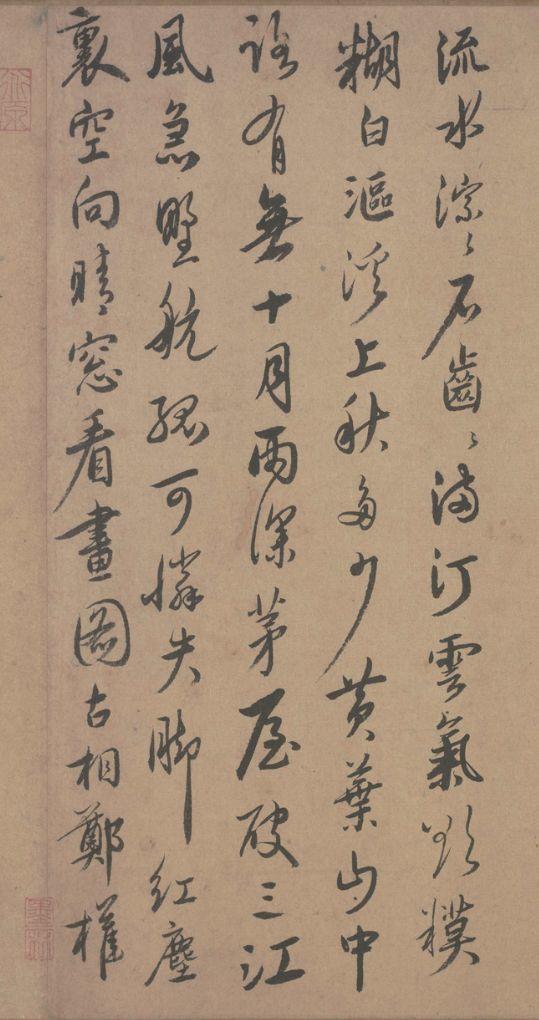 流水淙〻石齒〻滿汀雲氣欲糢
糊白漚溪上秋多少黃葉山中
路有無十月雨深茅屋破三江
風急野航孤可憐失脚紅塵
裏空向晴窓看畫圖古相鄭權
墨林